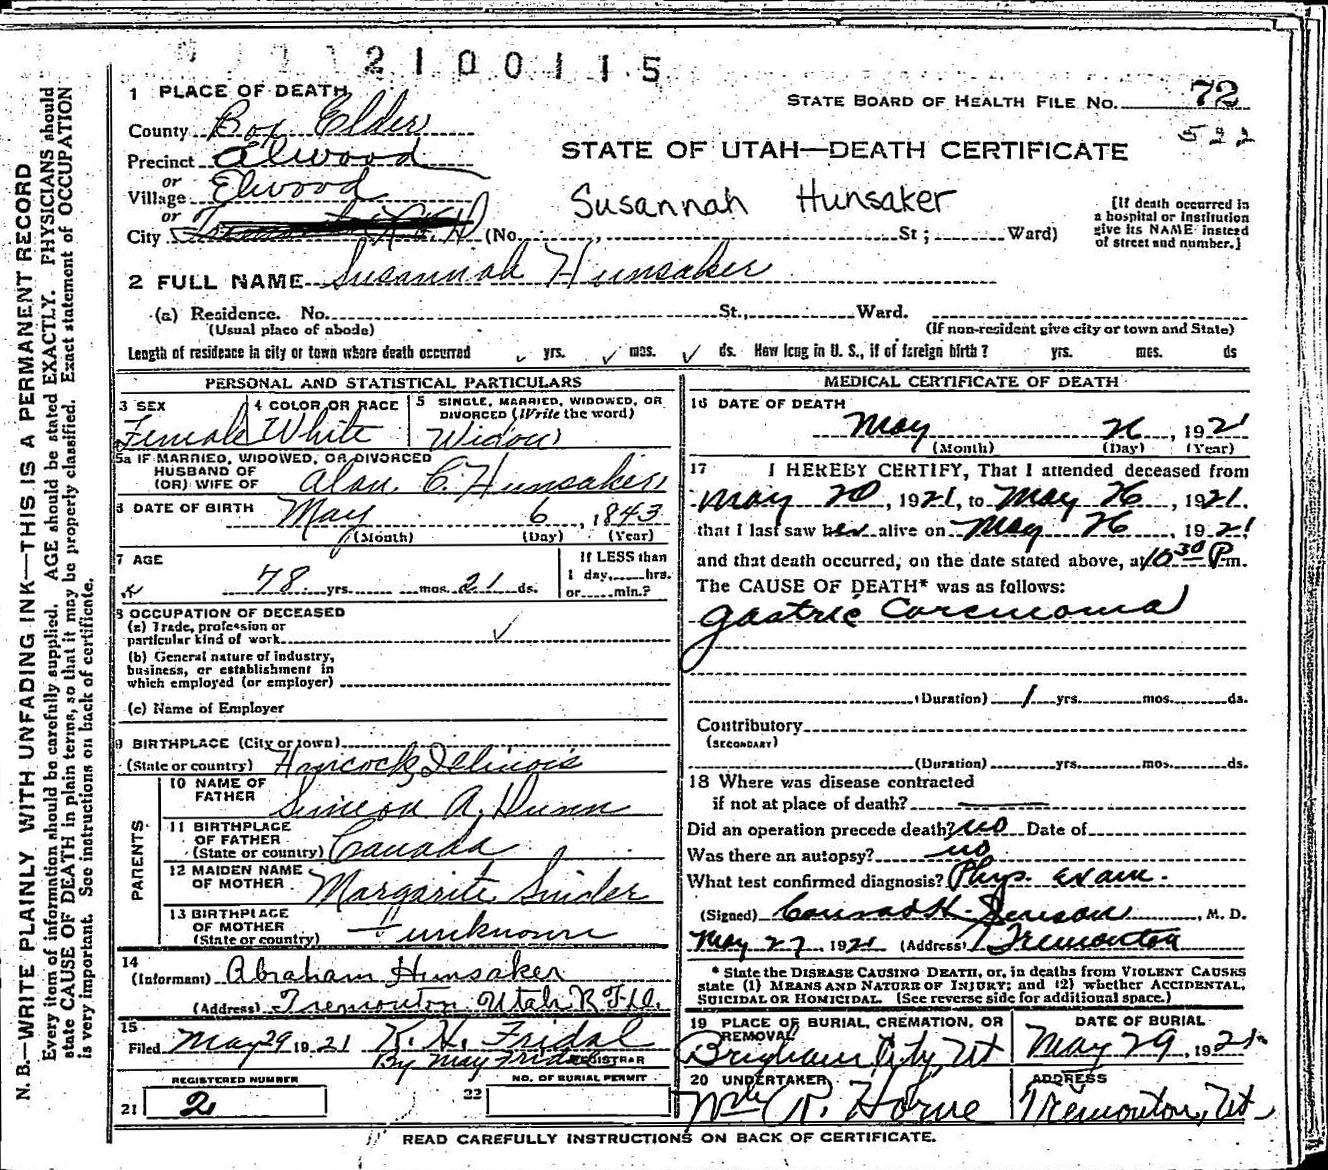 2100115
1 PLACE OF DEATH
STATE BOARD OF HEALTH FILE NO. 72
522
County Box Elder
Precinct Elwood
or
Village Elwood
or
City
STATE OF UTAH—DEATH CERTIFICATE
Susannah Hunsaker
[If death occurred in
a hospital or institution
give its NAME instead
of street and number.]
(No. St; Ward)
2 FULL NAME Susannah Hunsaker
(a) Residence. No. St., Ward.
(Usual place of abode) (If non-resident give city or town and State)
Length of residence in city or town where death occurred ✓ yrs. ✓ mos. ✓ ds. How long in U. S., if of foreign birth? yrs. mos. ds
PERSONAL AND STATISTICAL PARTICULARS
3 SEX
Female
4 COLOR OR RACE
White
5 SINGLE, MARRIED, WIDOWED, OR
DIVORCED (Write the word)
Widow
5a IF MARRIED, WIDOWED, OR DIVORCED
HUSBAND OF
(OR) WIFE OF Alan C. Hunsaker
6 DATE OF BIRTH May 6, 1843
(Month) (Day) (Year)
7 AGE
78 yrs. mos. 21 ds.
If LESS than
1 day, hrs.
or min.?
8 OCCUPATION OF DECEASED
(a) Trade, profession or
particular kind of work ✓
(b) General nature of industry,
business, or establishment in
which employed (or employer)
(c) Name of Employer
9 BIRTHPLACE (City or town)
(State or country) Hancock, Illinois
PARENTS
10 NAME OF
FATHER Simeon A. Dunn
11 BIRTHPLACE
OF FATHER
(State or country) Canada
12 MAIDEN NAME
OF MOTHER Margarite Snider
13 BIRTHPLACE
OF MOTHER
(State or country) unknown
14
(Informant) Abraham Hunsaker
(Address) Tremonton Utah R.F.D.
15
Filed May 29 1921 K. H. Fridal
By May Fridal REGISTRAR
REGISTERED NUMBER
21 2
NO. OF BURIAL PERMIT
22
MEDICAL CERTIFICATE OF DEATH
16 DATE OF DEATH
May 26, 1921
(Month) (Day) (Year)
17 I HEREBY CERTIFY, That I attended deceased from
May 20, 1921, to May 26, 1921.
that I last saw her alive on May 26, 1921
and that death occurred, on the date stated above, at 10 30 P m.
The CAUSE OF DEATH* was as follows:
gastric Carcinoma
(Duration) 1 yrs. mos. ds.
Contributory
(SECONDARY)
(Duration) yrs. mos. ds.
18 Where was disease contracted
if not at place of death?
Did an operation precede death? no Date of
Was there an autopsy? no
What test confirmed diagnosis? Phys. exam.
(Signed) Conrad H. Jenson, M. D.
May 27, 1921 (Address) Tremonton
* State the DISEASE CAUSING DEATH, or, in deaths from VIOLENT CAUSES
state (1) MEANS AND NATURE OF INJURY; and (2) whether ACCIDENTAL,
SUICIDAL OR HOMICIDAL. (See reverse side for additional space.)
19 PLACE OF BURIAL, CREMATION, OR
REMOVAL
Brigham City, Ut
DATE OF BURIAL
May 29, 1921
20 UNDERTAKER
R. Horne
ADDRESS
Tremonton, Ut
READ CAREFULLY INSTRUCTIONS ON BACK OF CERTIFICATE.
N. B.—WRITE PLAINLY WITH UNFADING INK—THIS IS A PERMANENT RECORD
Every item of information should be carefully supplied. AGE should be stated EXACTLY. PHYSICIANS should
state CAUSE OF DEATH in plain terms, so that it may be properly classified. Exact statement of OCCUPATION
is very important. See instructions on back of certificate.